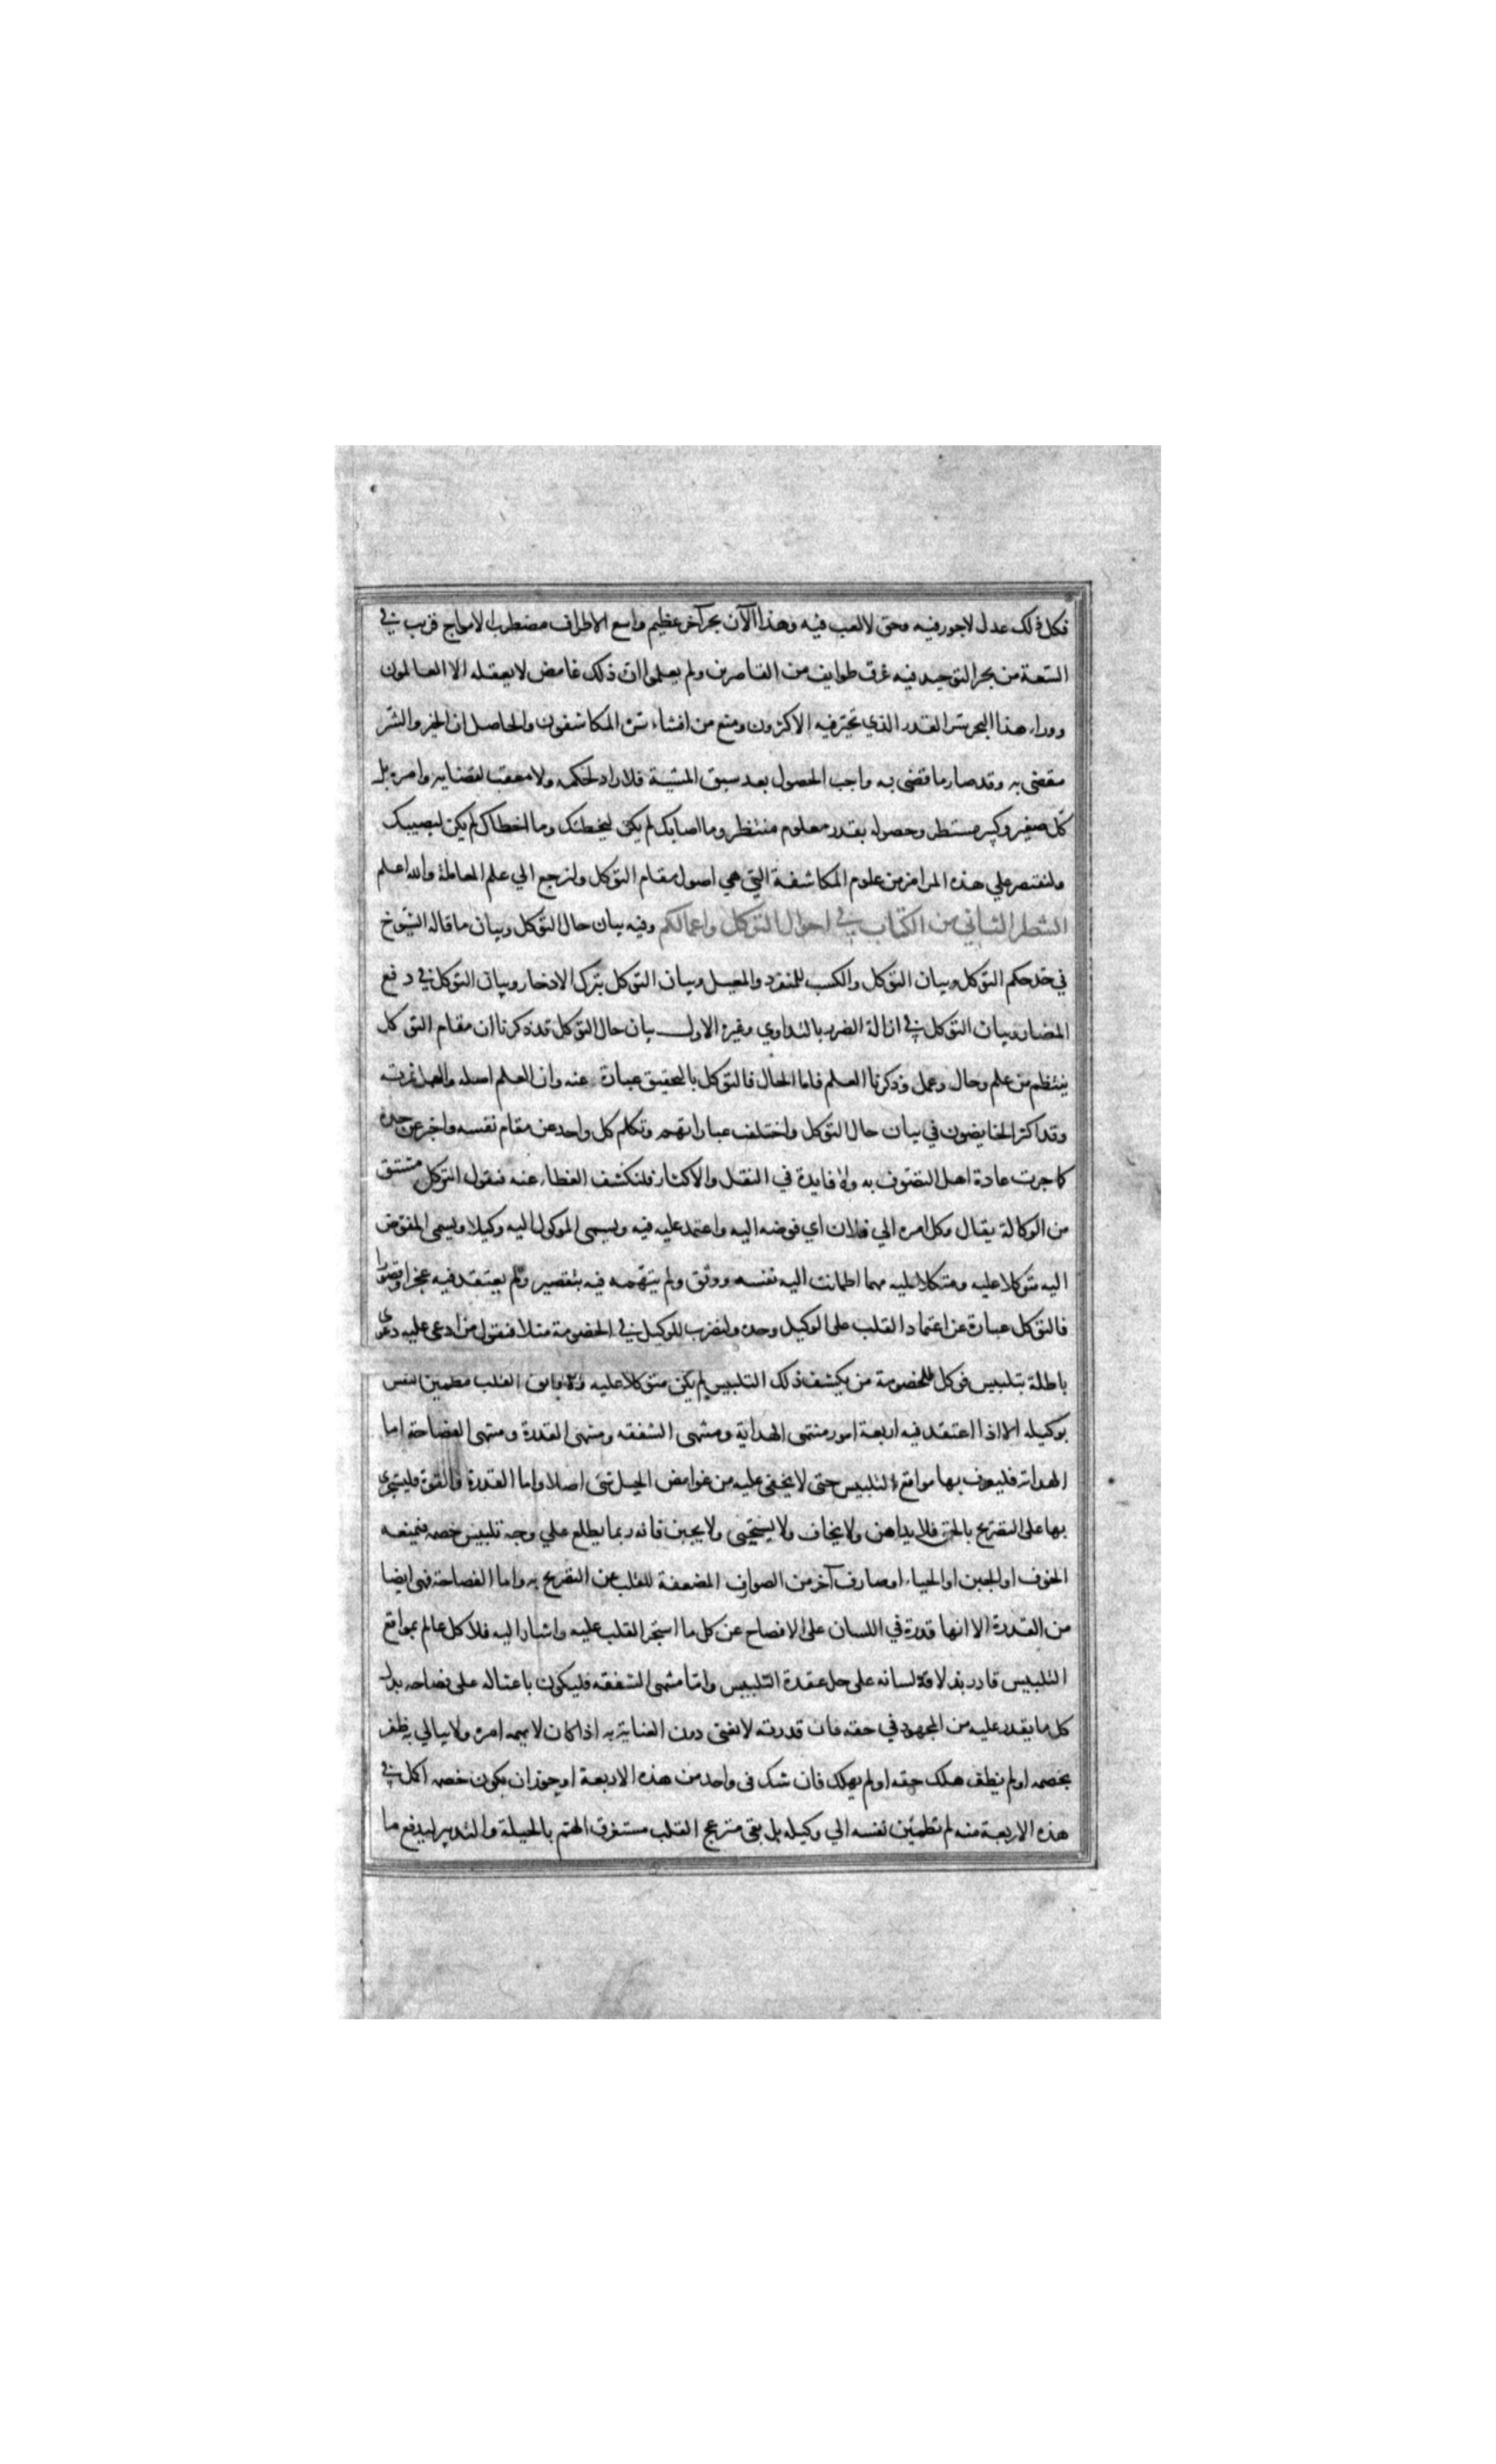 فكل ذلك عدل لاجور فيه وحق لالعب فيه وهذا الآن بحر آخر عظيم واسع الاطراف مضطرب الامواج قريب في
السّعة من بحر التوحيد فيه غرق طوايف من القاصرين ولم يعلموا ان ذلك غامض لايعقله الا العالمون
ووراء هذا البحر سّر القدر الذي تحيّر فيه الاكثرون ومنع من افشاء سّره المكاشفون والحاصل ان الخير والشّر
مقضى به وقد صار ما قضى به واجب الحصول بعد سبق المشيّة فلا رادّ لحكمه ولا معقب لقضايه وامره بل
كل صغير وكبير مستطر وحصوله بقدر معلوم منتظر وما اصابك لم يكن ليخطئك وما اخطاك لم يكن ليصيبك
ولنقتصر علي هذه المرامز من علوم المكاشفة التي هي اصول مقام التوكل ولنرجع الي علم المعاملة والله اعلم
الشطر الثاني من الكتاب في احوال التوكل واعمالكم وفيه بيان حال التوكل وبيان ما قاله الشيوخ
في حّد حكم التوكل وبيان التوكل والكسب للمنفرد والمعيل وبيان التوكل بترك الادخار وبيان التوكل في دفع
المضار وبيان التوكل في ازالة الضرر بالتداوي وغيره الاول بيان حال التوكل قد ذكرنا ان مقام التوكل
ينتظم من علم وحال وعمل وذكرنا العلم فاما الحال فالتوكل بالتحقيق عبارة عنه وان العلم اصله والعمل ثمرته
وقد اكثر الخايضون في بيان حال التوكل واختلف عباراتهم وتكلم كل واحد عن مقام نفسه واخبر عن حده
كما جرت عادة اهل التصّوف به ولا فايدة في النقل والاكثار فلنكشف الغطاء عنه فنقول التوكل مشتق
من الوكالة يقال وكل امره الي فلان اي فوضه اليه واعتمد عليه فيه ويسمى الموكول اليه وكيلا ويسمى المفوّض
اليه متوكلا عليه ومتكلا عليه مهما اطمانت اليه نفسه ووثق ولم يتّهمه فيه بتقصير ولم يعتقد فيه عجزا وقصورا
فالتوكل عبارة عن اعتماد القلب على الوكيل وحده ولنضرب للوكيل في الخصومة مثلا فنقول من ادعى عليه دعوى
باطلة بتلبيس فوكل للخصومة من يكشف ذلك التلبيس لم يكن متوكلا عليه ولا واثق القلب مطمين النفس
بوكيله الا اذا اعتقد فيه اربعة امور منتهى الهداية ومنتهى الشفقه ومنتهى القدرة ومنتهى الفصاحة اما
الهداية فليعرف بها مواقع التلبيس حتى لا يخفى عليه من غوامض الحيل شئ اصلا واما القدرة والقوة فليتجرى
بها على التصريح بالحق فلا يداهن ولا يخاف ولا يستحيى ولا يجبن فانه ربما يطلع علي وجه تلبيس خصمه فيمنعه
الخوف او الجبن او الحياء او صارف آخر من الصوارف المضعفة للقلب عن التصريح به واما الفصاحة فهى ايضا
من القدرة الا انها قدرة في اللسان على الافصاح عن كل ما استجر القلب عليه واشار اليه فلا كل عالم بمواقع
التلبيس قادر بذلاقة لسانه على حل عقدة التلبيس وامّا منتهى الشفقه فليكون باعثا له على بذل
كل ما يقدر عليه من المجهود في حقه فان قدرته لا تغنى دون العناية به اذا كان لا يهمه امره ولا يبالي به ظفر
بخصمه او لم يظفر هلك حقه او لم يهلك فان شك فى واحد من هذه الاربعة او جوز ان يكون خصمه اكمل في
هذه الاربعة منه لم تطمئن نفسه الي وكيله بل بقى منزعج القلب مستغرق الهّم بالحيلة والتدبير ليدفع ما